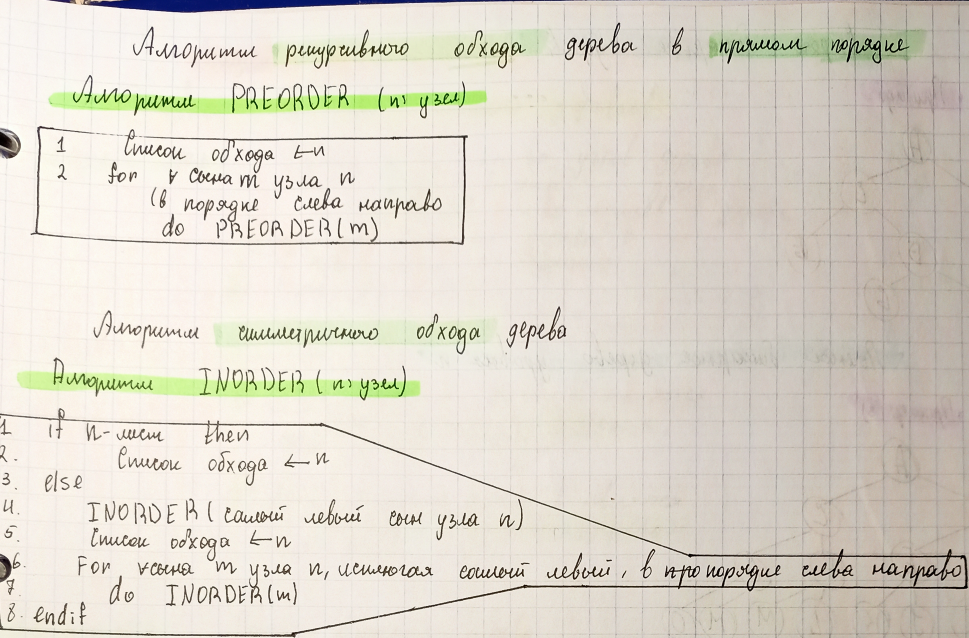 Алгоритм рекурсивного обхода дерева в прямом порядке
Алгоритм PREORDER (n: узел)
1 Список обхода ← n
2 for ∀ сына m узла n
(в порядке слева направо
do PREORDER(m)
Алгоритм симметричного обхода дерева
Алгоритм INORDER (n: узел)
1 if n-лист then
2. Список обхода ← n
3. else
4. INORDER (самый левый сын узла n)
5. Список обхода ← n
6. For ∀ сына m узла n, исключая самый левый, в пропорядке слева направо
7 do INORDER(m)
8. endif